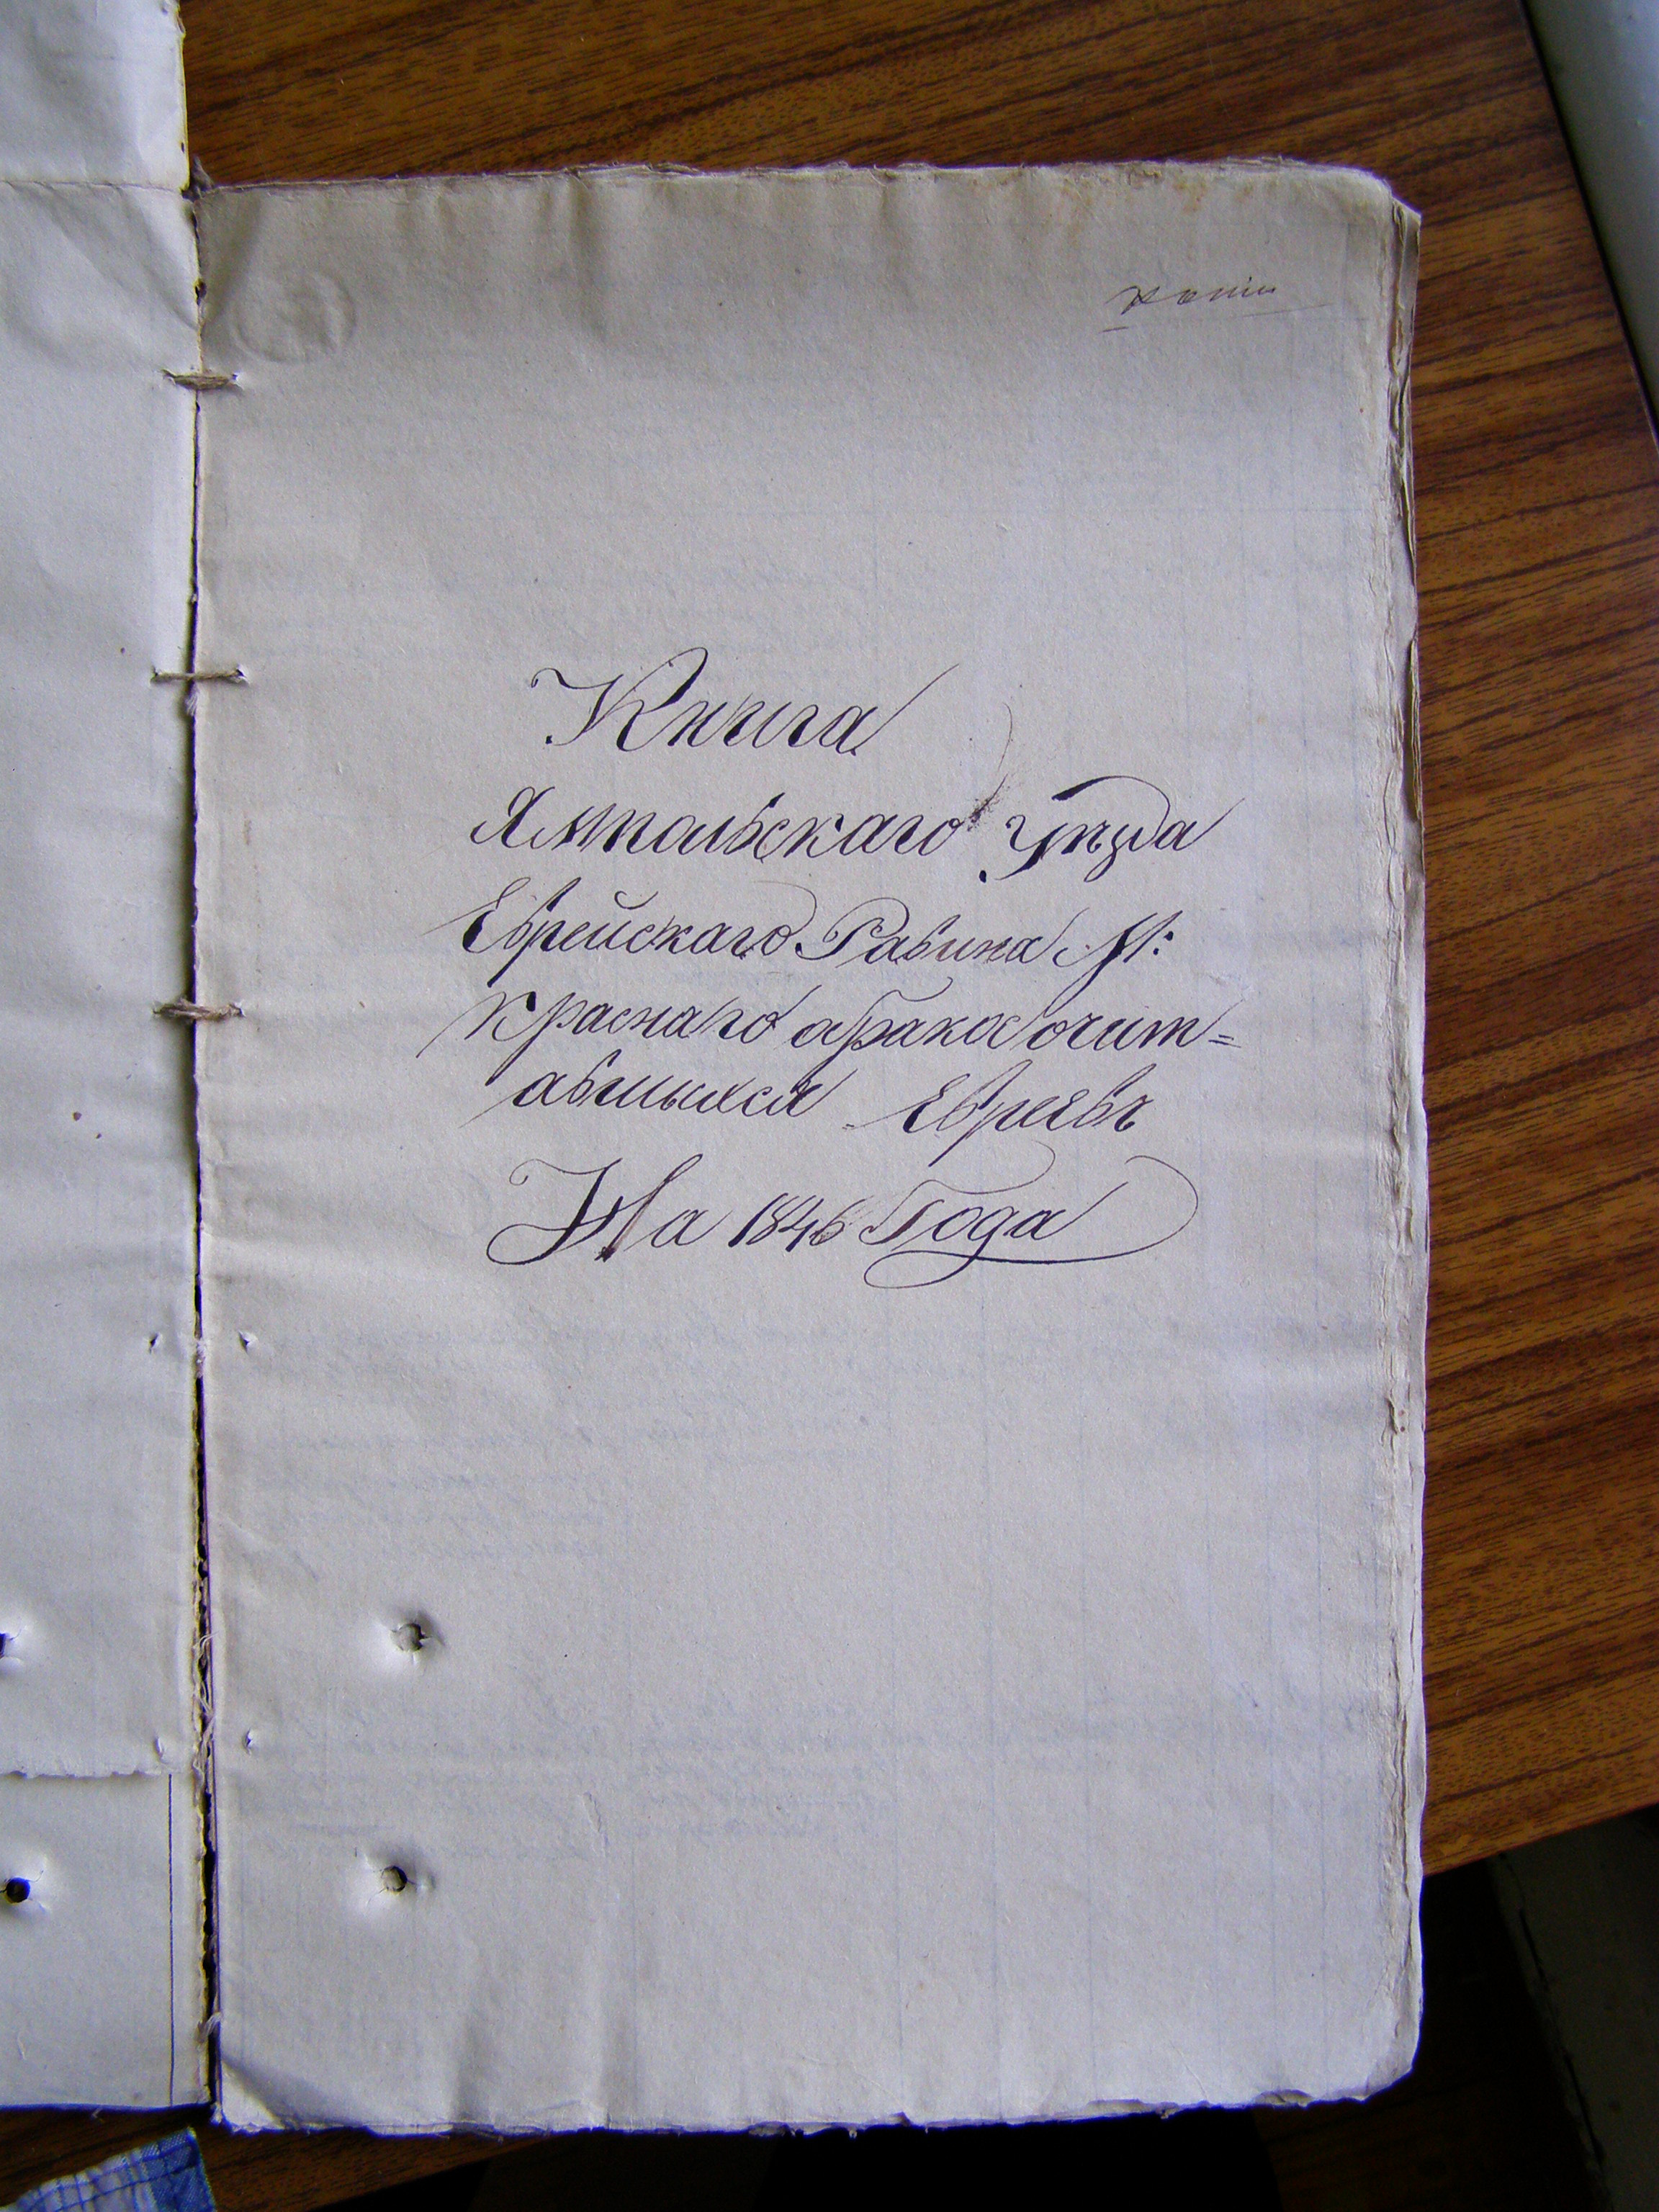 копiи
Книга
Ямпольскаго Уѣзда
Еврейскаго Равина М:
Краснаго обракосочит=
авшыхся Евреевъ
На 1846 Года